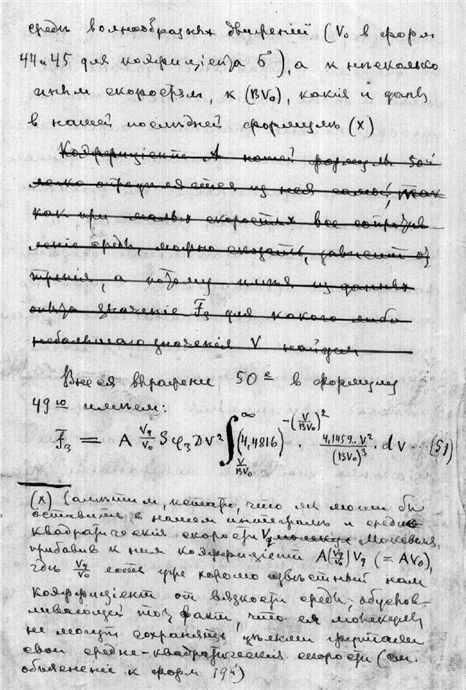 среды волнообразных движеній (V₀ в форм
44 и 45 для коэфиціента б), а к нѣсколько
иным скоростям, к (BV₀), какія и даны
в нашей послѣдней формулѣ (X)
Коэффиціент A нашей формулы 50й
легко определяется из нея самой, так
как при малых скоростях все сопротив
леніе среды, можно сказать, зависит от
тренія, а потому имея из данных
опыта значеніе F₃ для какого либо
небольшого значенія V найдем
Внеся выражение 50е в формулу
49ю имѣем:
F₃ = A V₉/V₀ S φ₃ D V² ∫_{V/BV₀}^{∞} (4,4816)^{-(V/BV₀)²} · 4,1459.. V²/(BV₀)³ · dV ... (51)
(X) Замѣтим, кстати, что мы могли бы
оставить в нашем интегралѣ и средне
квадратическія скорости V₉ Молекул,
прибавив к ним коэффиціент A(V₉/V₀)V₉ (= AV₀),
гдѣ V₉/V₀ есть уже хорошо извѣстный нам
коэффиціент от вязкости среды, обуслов-
ливающей тот факт, что ея молекулы
не могут сохранять цѣликом
свои средне-квадратическія скорости (см.
объясненіе к форм 19й)